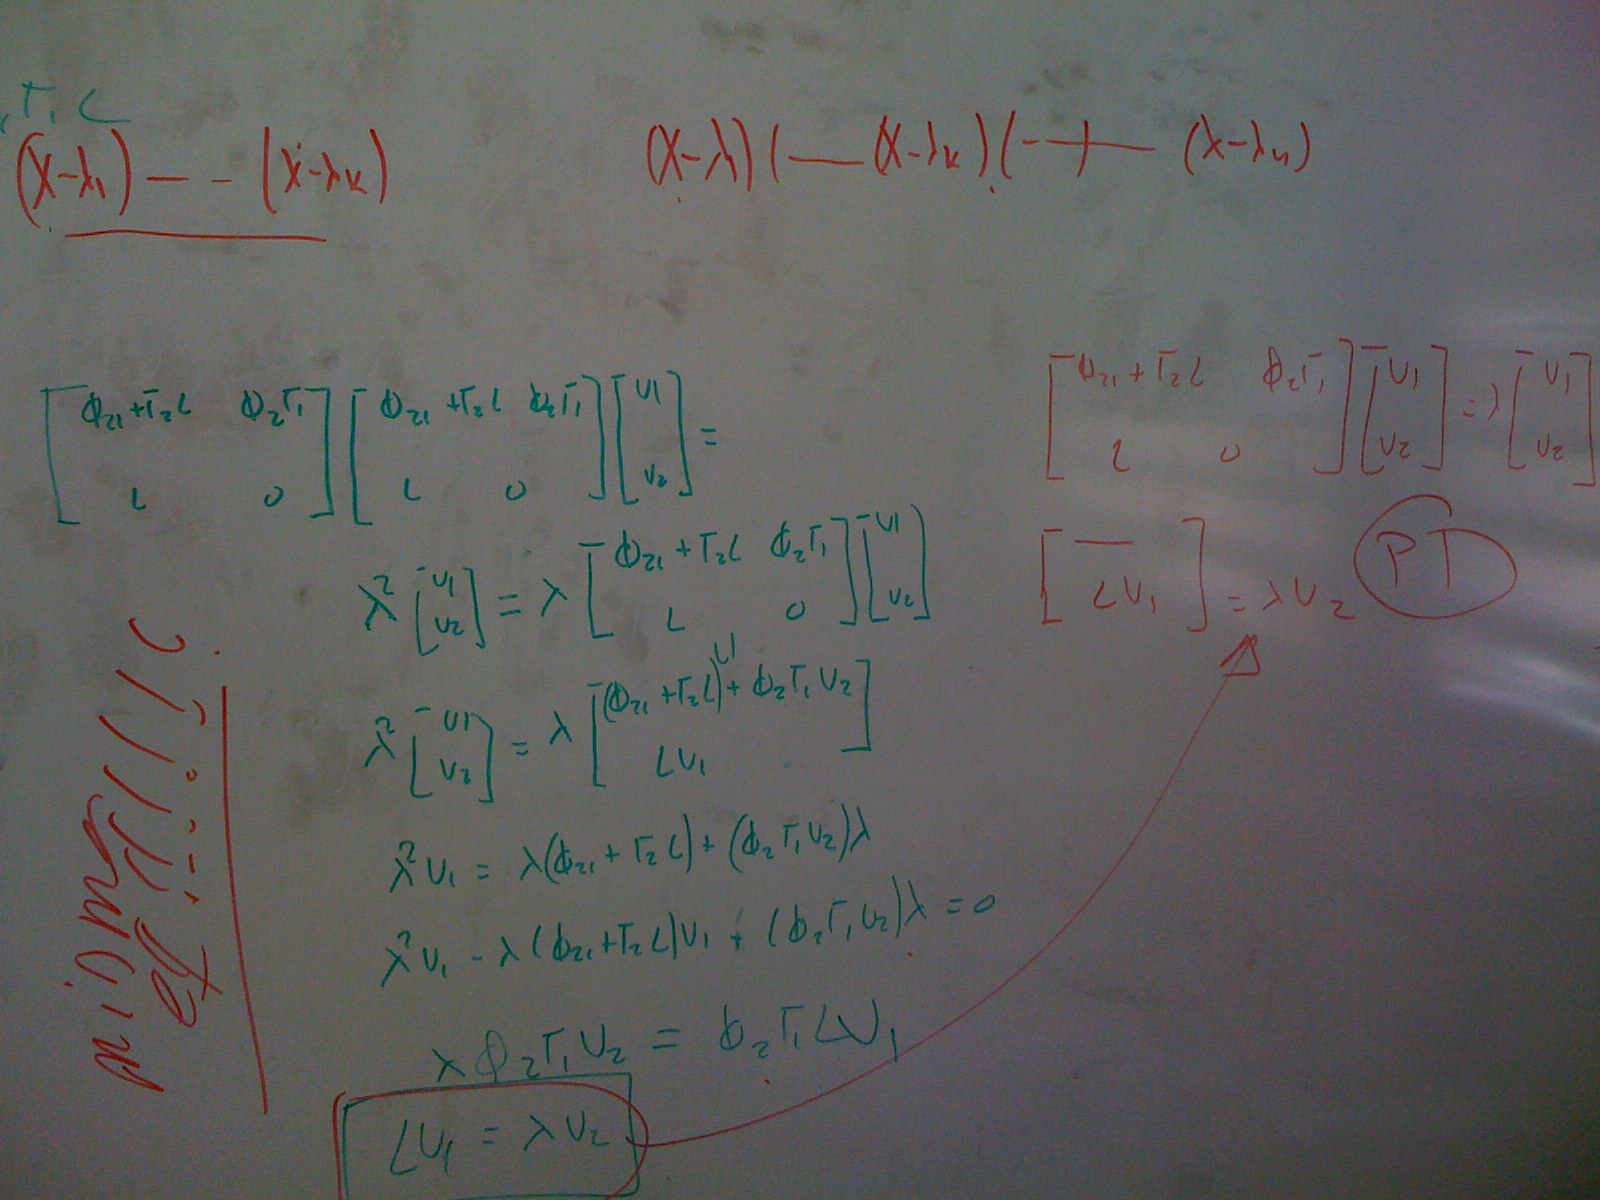 Γ₁ L
(x-λ₁) - - - (x-λₖ)
(x-λ₁)( — (x-λₖ)( - + — (x-λₙ)
[Φ₂₁+Γ₂L Φ₂Γ₁] [Φ₂₁+Γ₂L Φ₂Γ₁] [v₁] =
[L 0] [L 0] [v₂]
λ² [v₁] = λ [Φ₂₁+Γ₂L Φ₂Γ₁] [v₁]
[v₂] [L 0] [v₂]
λ² [v₁] = λ [(Φ₂₁+Γ₂L)v₁ + Φ₂Γ₁v₂]
[v₂] [Lv₁]
λ²v₁ = λ(Φ₂₁+Γ₂L) + (Φ₂Γ₁v₂)λ
λ²v₁ - λ(Φ₂₁+Γ₂L)v₁ + (Φ₂Γ₁v₂)λ = 0
λΦ₂Γ₁v₂ = Φ₂Γ₁Lv₁
Lv₁ = λv₂
[Φ₂₁+Γ₂L Φ₂Γ₁] [v₁] = λ [v₁]
[L 0] [v₂] [v₂]
[—]
[Lv₁] = λv₂ PT